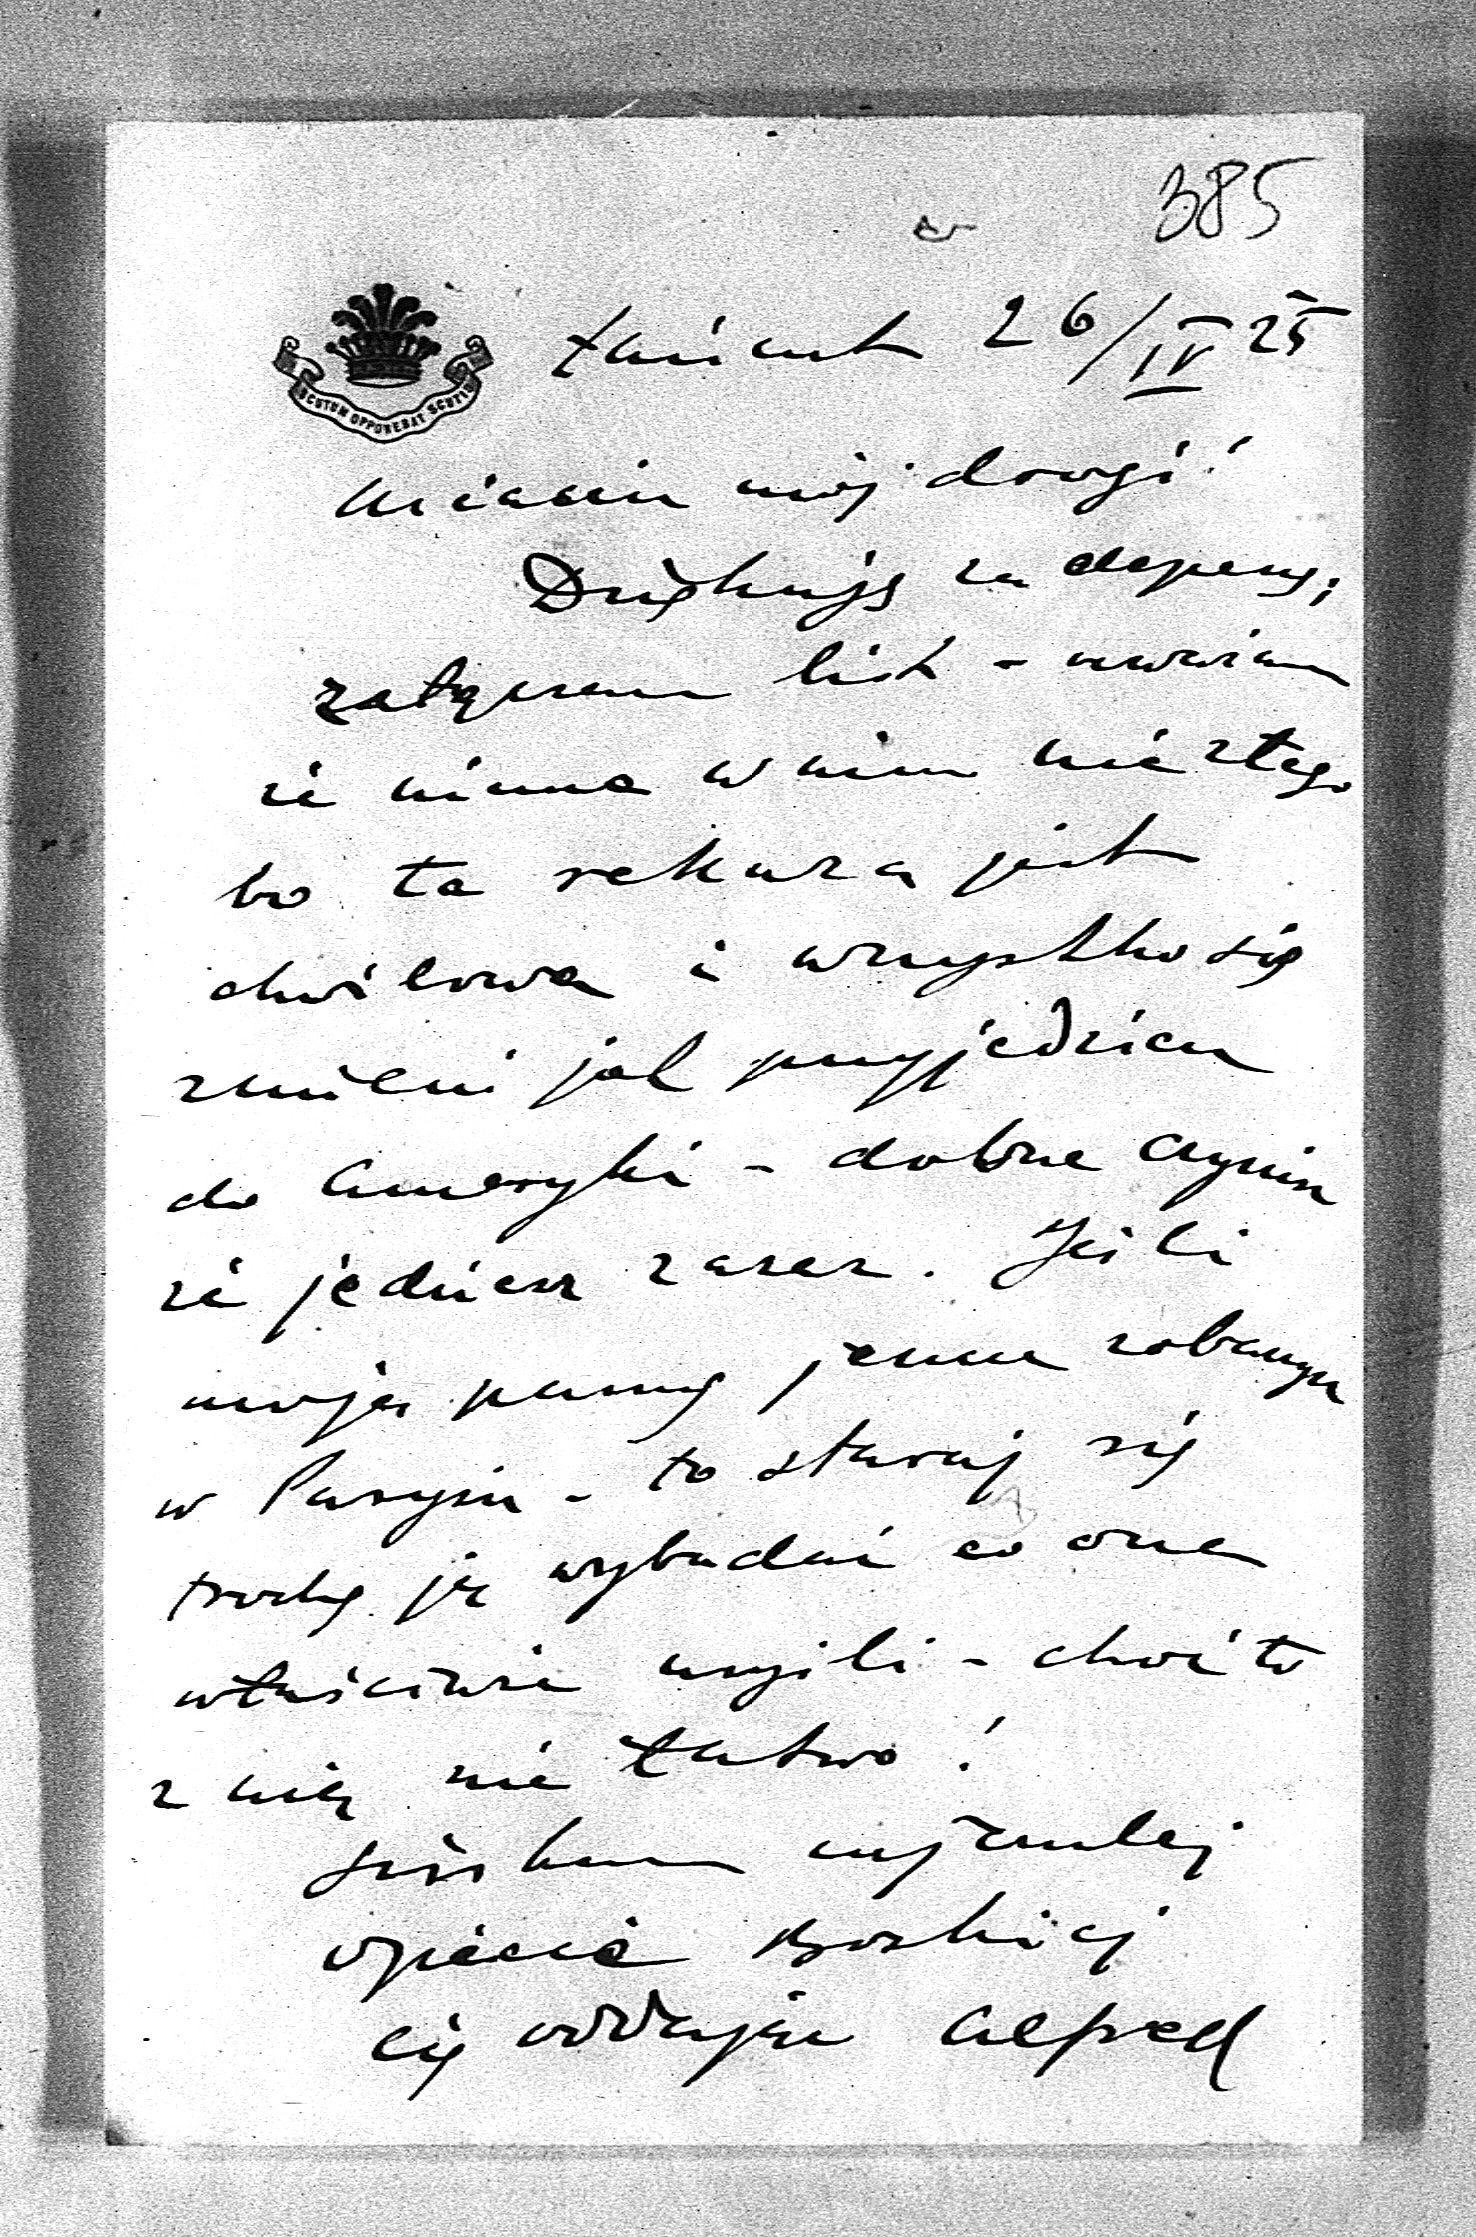 385
SCUTUM OPPONEBAT SCUTIS
Łańcut 26/IV 25
mój drogi!
Dziękuję za depeszę,
załączam list - uważam
że niema w nim nic złego
bo ta rekuza jest
chwilowa i wszystko się
zmieni jak przyjedziesz
do Ameryki - dobrze czynisz
że jedziesz zaraz. Jeśli
moją pannę jenne zobaczysz
w Paryżu - to staraj się
trochę ją wybadać co ona
właściwie myśli - choć to
z nią nie łatwo!
Ściskam najczulej
opiece Boskiej
cię oddając Alfred